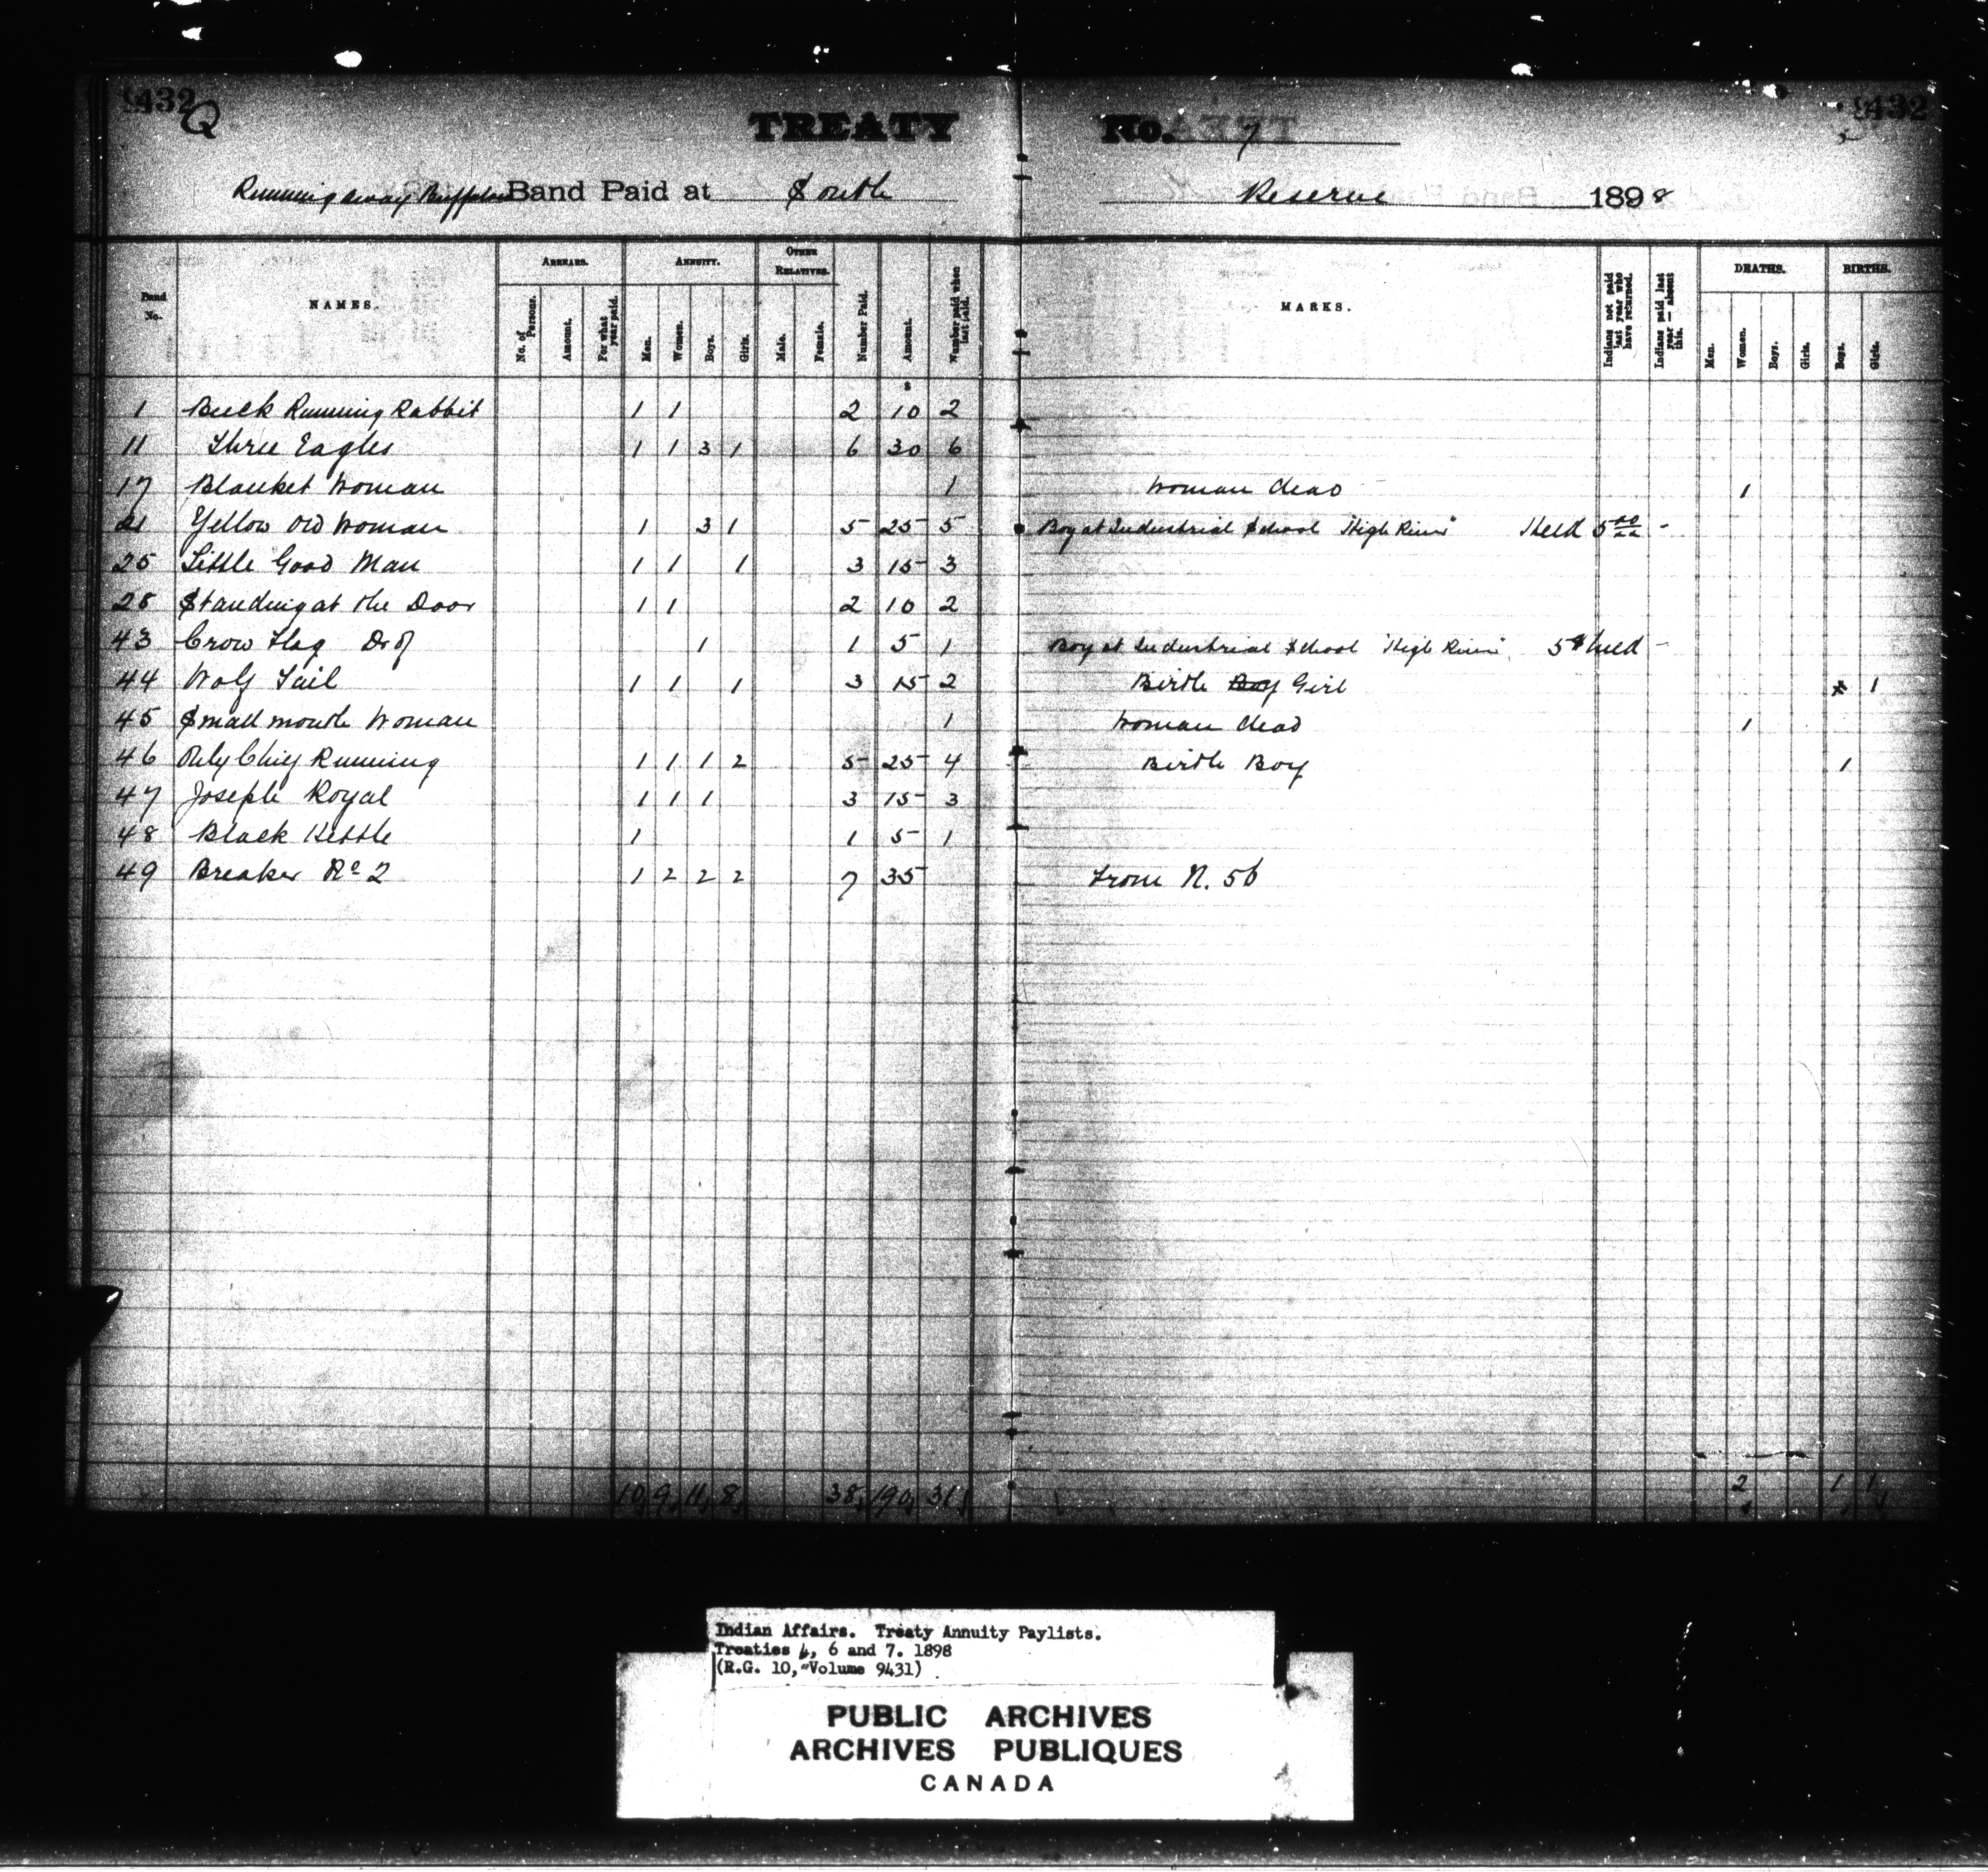 432 Q 432
TREATY No. 7
Running away Buffalo Band Paid at South Reserve 1898
Band No. NAMES. ARREARS. ANNUITY. OTHER RELATIVES. Number Paid. Amount. Number paid when last paid. MARKS. Indians not paid last year who have returned. Indians paid last year — absent this. DEATHS. BIRTHS.
No. of Persons. Amount. For what year paid. Men. Women. Boys. Girls. Male. Female. Men. Women. Boys. Girls. Boys. Girls.
$
1 Buck Running Rabbit 1 1 2 10 2
11 Three Eagles 1 1 3 1 6 30 6
17 Blanket Woman 1 Woman dead 1
21 Yellow Old Woman 1 3 1 5 25 5 Boy at Industrial School "High River" Held 5.00 -
25 Little Good Man 1 1 1 3 15 3
28 Standing at the Door 1 1 2 10 2
43 Crow Flag Dr of 1 1 5 1 Boy at Industrial School "High River" 5$ held -
44 Wolf Tail 1 1 1 3 15 2 Birth Boy Girl x 1
45 Small mouth Woman 1 Woman dead 1
46 Only Chief Running 1 1 1 2 5 25 4 Birth Boy 1
47 Joseph Royal 1 1 1 3 15 3
48 Black Kettle 1 1 5 1
49 Breaker No 2 1 2 2 2 7 35 From N. 56
10, 9, 11, 8, 38, 190, 31, 2 1 1
Indian Affairs. Treaty Annuity Paylists.
Treaties 4, 6 and 7. 1898
(R.G. 10, Volume 9431)
PUBLIC ARCHIVES
ARCHIVES PUBLIQUES
CANADA